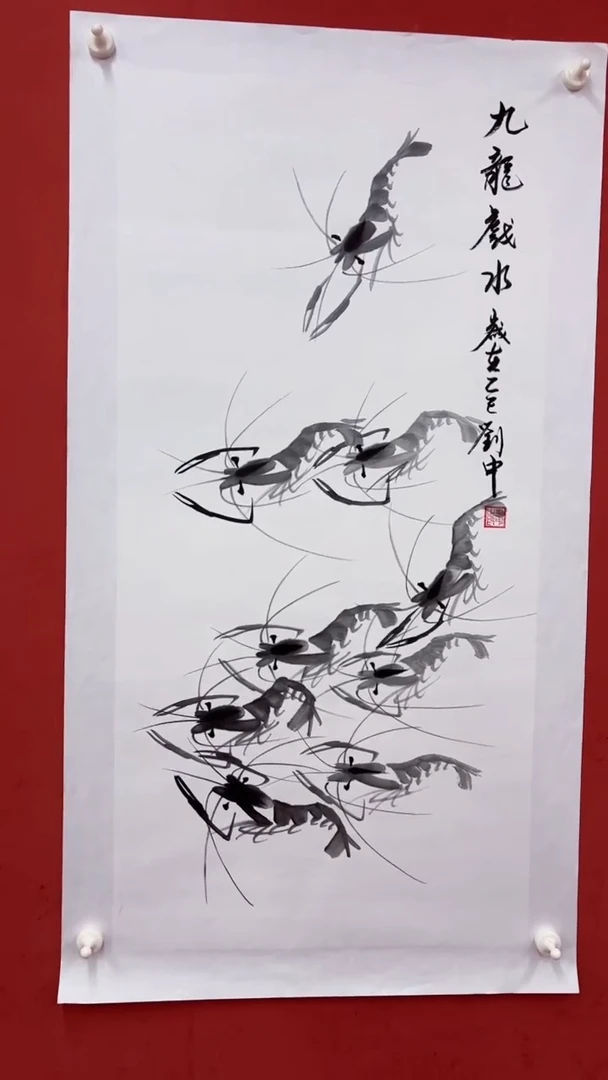 九龍戲水
歲在乙巳劉中